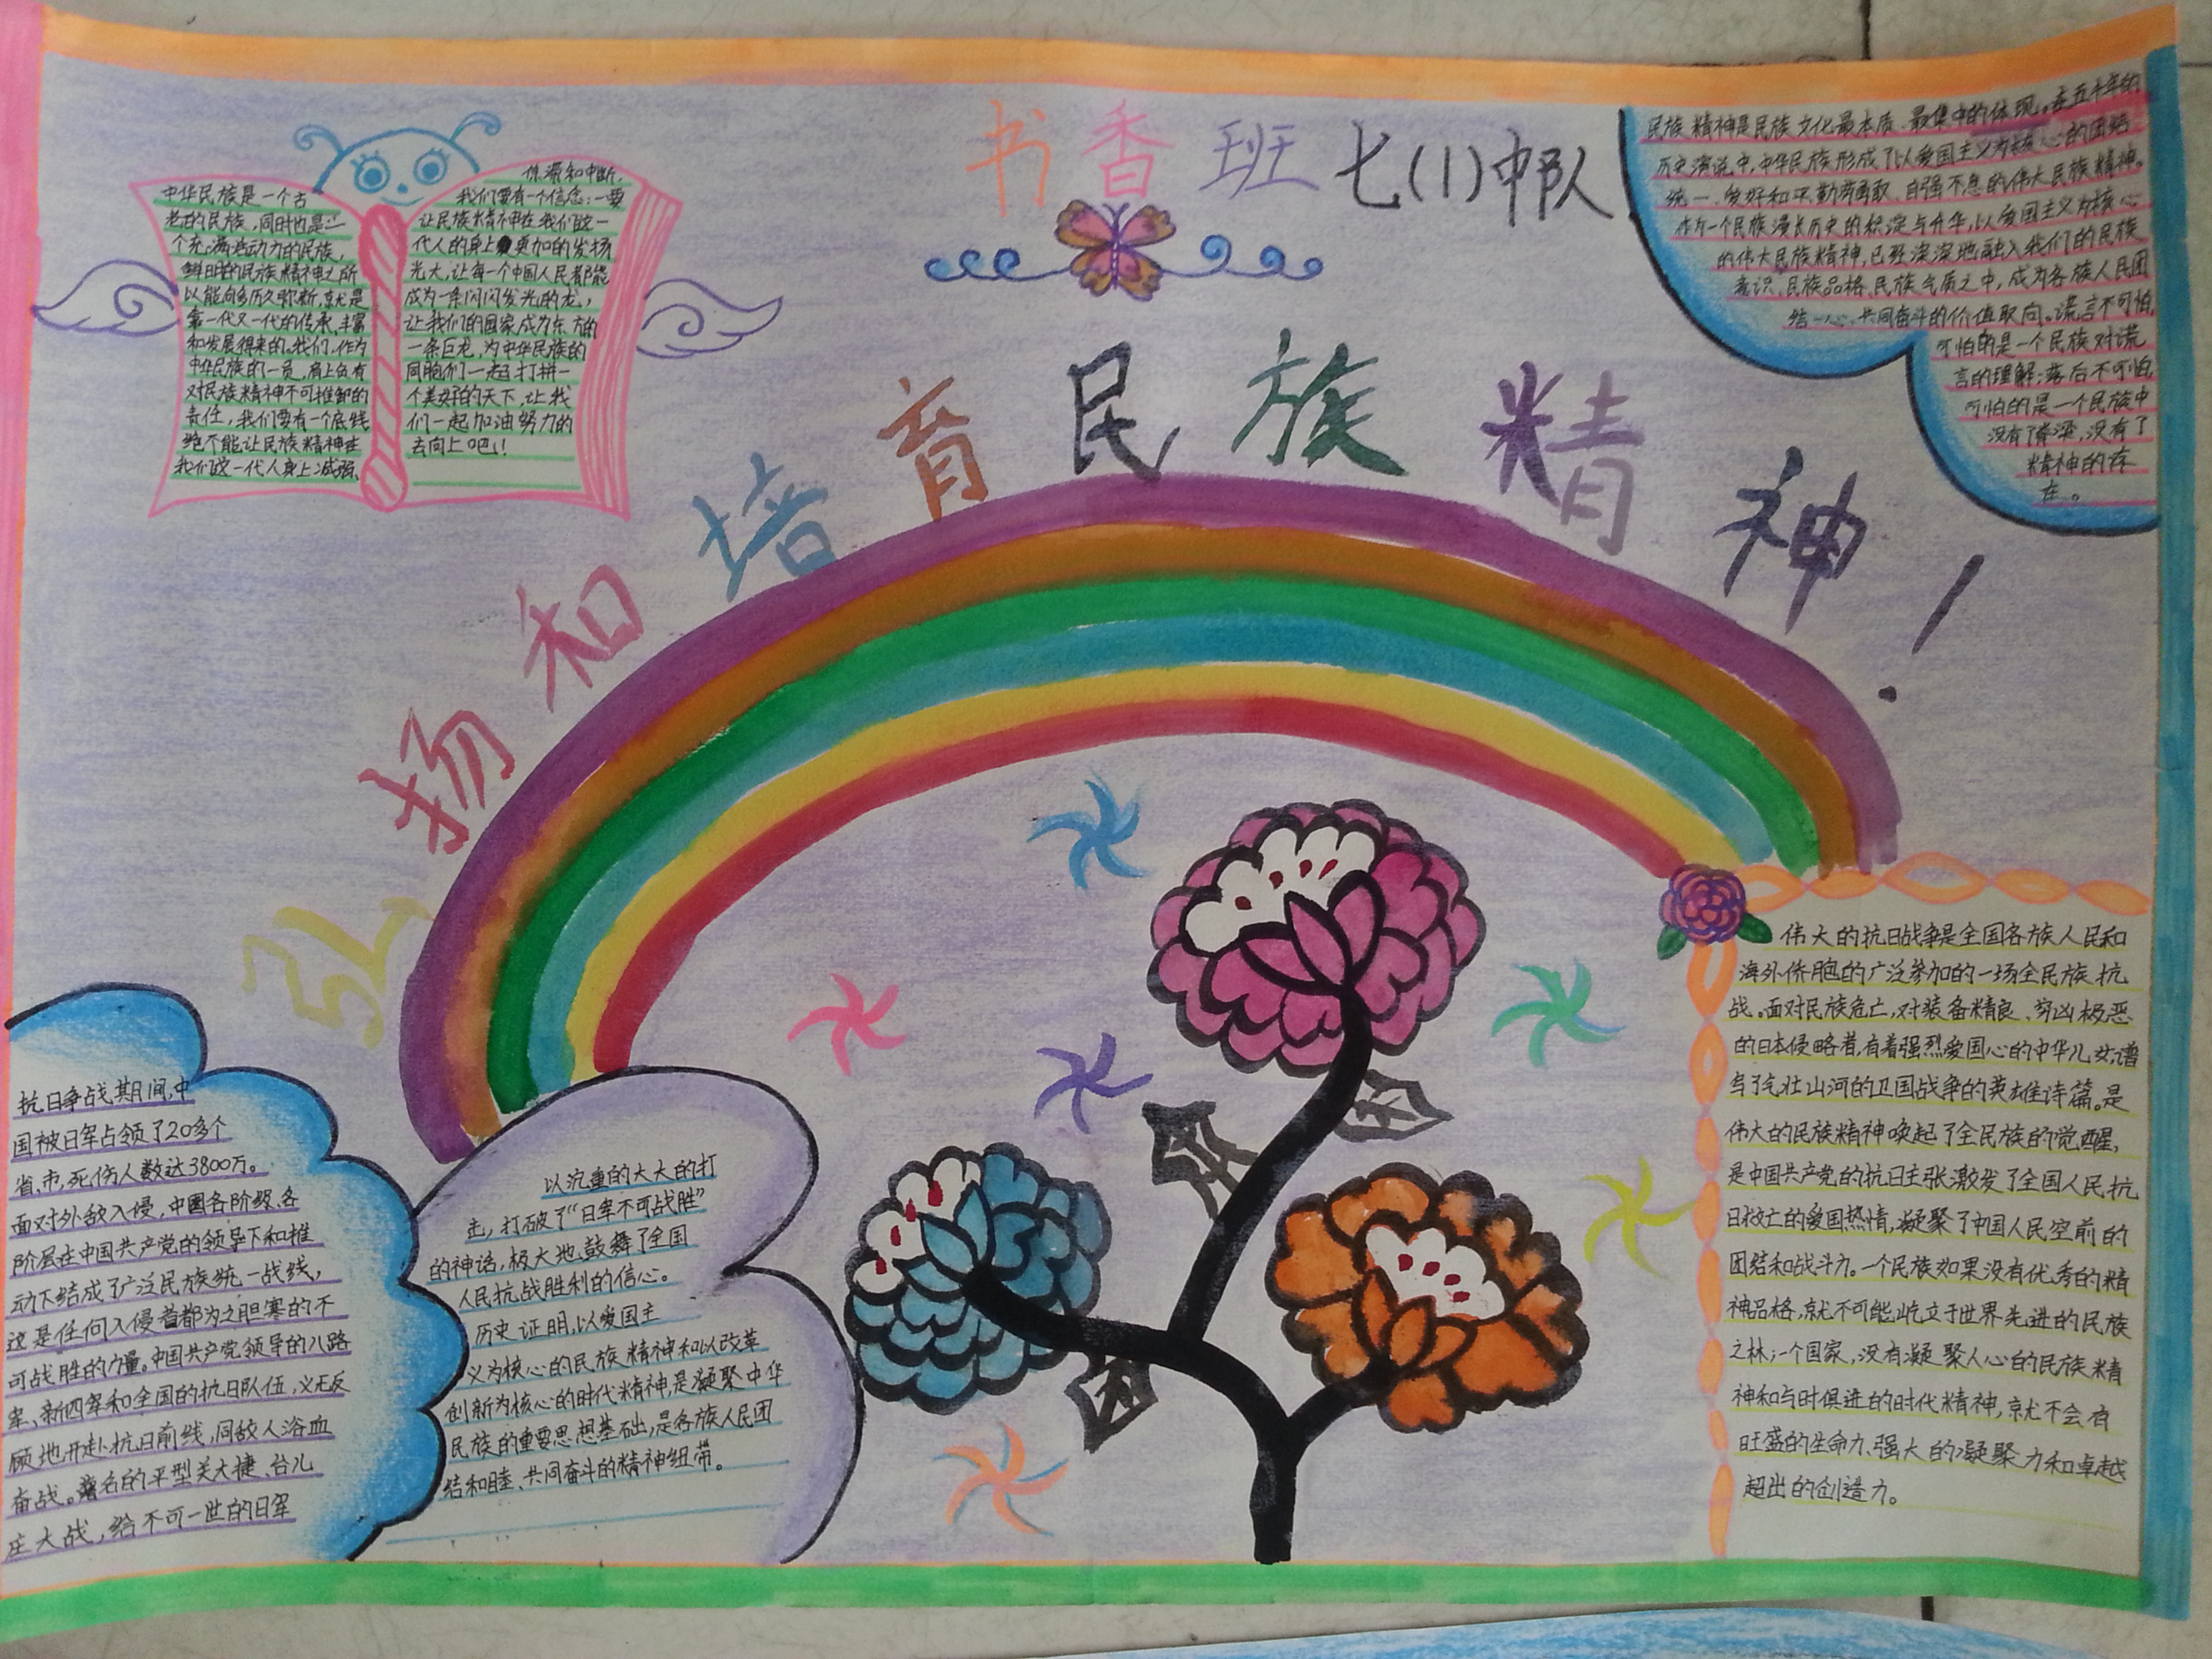 书香班七(1)中队
弘扬和培育民族精神！
中华民族是一个古
老的民族，同时也是一
个充满活动力的民族，
鲜明的民族精神之所
以能够历久弥新，就是
靠一代又一代的传承、丰富
和发展得来的。我们，作为
中华民族的一员，肩上负有
对民族精神不可推卸的
责任，我们要有一个底线
绝不能让民族精神在
我们这一代人身上减弱、
和中断，
我们要有一个信念：一要
让民族精神在我们这一
代人的身上更加的发扬
光大，让每一个中国人民都能
成为一条闪闪发光的龙，
让我们的国家成为东方的
一条巨龙，为中华民族的
同胞们一起打拼一
个美好的天下，让我
们一起加油努力的
去向上吧！
民族精神是民族文化最本质、最集中的体现。在五千年的
历史演说中，中华民族形成了以爱国主义为核心的团结
统一、爱好和平、勤劳勇敢、自强不息的伟大民族精神。
作为一个民族漫长历史的积淀与升华，以爱国主义为核心
的伟大民族精神，已经深深地融入我们的民族
意识、民族品格、民族气质之中，成为各族人民团
结一心、共同奋斗的价值取向。谎言不可怕，
可怕的是一个民族对谎
言的理解；落后不可怕，
可怕的是一个民族中
没有了脊梁，没有了
精神的存
在。
抗日争战期间，中
国被日军占领了20多个
省、市，死伤人数达3800万。
面对外敌入侵，中国各阶级、各
阶层在中国共产党的领导下和推
动下结成了广泛民族统一战线，
这是任何入侵者都为之胆寒的不
可战胜的力量。中国共产党领导的八路
军、新四军和全国的抗日队伍，义无反
顾地开赴抗日前线，同敌人浴血
奋战。著名的平型关大捷、台儿
庄大战，给不可一世的日军
以沉重的大大的打
击，打破了“日军不可战胜”
的神话，极大地鼓舞了全国
人民抗战胜利的信心。
历史证明，以爱国主
义为核心的民族精神和以改革
创新为核心的时代精神，是凝聚中华
民族的重要思想基础，是各族人民团
结和睦、共同奋斗的精神纽带。
伟大的抗日战争是全国各族人民和
海外侨胞的广泛参加的一场全民族抗
战。面对民族危亡，对装备精良、穷凶极恶
的日本侵略者，有着强烈爱国心的中华儿女，谱
写了气壮山河的卫国战争的英雄诗篇。是
伟大的民族精神唤起了全民族的觉醒，
是中国共产党的抗日主张激发了全国人民抗
日救亡的爱国热情，凝聚了中国人民空前的
团结和战斗力。一个民族如果没有优秀的精
神品格，就不可能屹立于世界先进的民族
之林；一个国家，没有凝聚人心的民族精
神和与时俱进的时代精神，就不会有
旺盛的生命力、强大的凝聚力和卓越
超出的创造力。